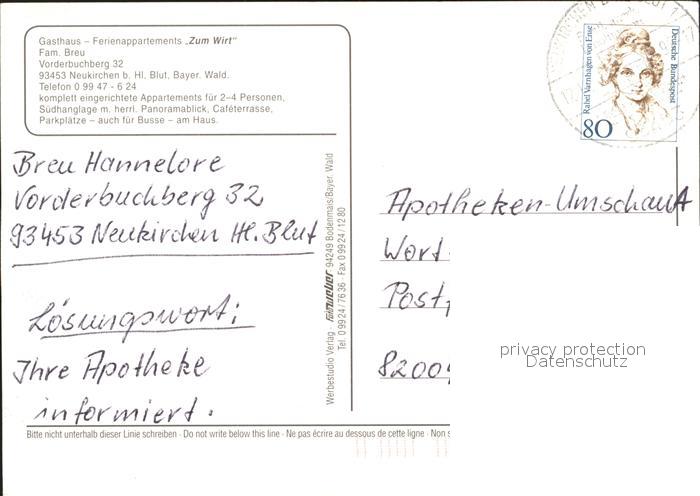 Gasthaus – Ferienappartements „Zum Wirt"
Fam. Breu
Vorderbuchberg 32
93453 Neukirchen b. Hl. Blut, Bayer. Wald.
Telefon 0 99 47 - 6 24
komplett eingerichtete Appartements für 2–4 Personen,
Südhanglage m. herrl. Panoramablick, Caféterrasse,
Parkplätze – auch für Busse – am Haus.
Breu Hannelore
Vorderbuchberg 32
93453 Neukirchen Hl. Blut
Lösungswort:
Ihre Apotheke
informiert.
Bitte nicht unterhalb dieser Linie schreiben · Do not write below this line · Ne pas écrire au dessous de cette ligne · Non s
Werbestudio Verlag · 94249 Bodenmais/Bayer. Wald
Tel. 0 99 24 / 76 36 · Fax 0 99 24 / 12 80
Rahel Varnhagen von Ense
Deutsche Bundespost
80
Apotheken-Umschau A
Wort
Post
8200
privacy protection
Datenschutz